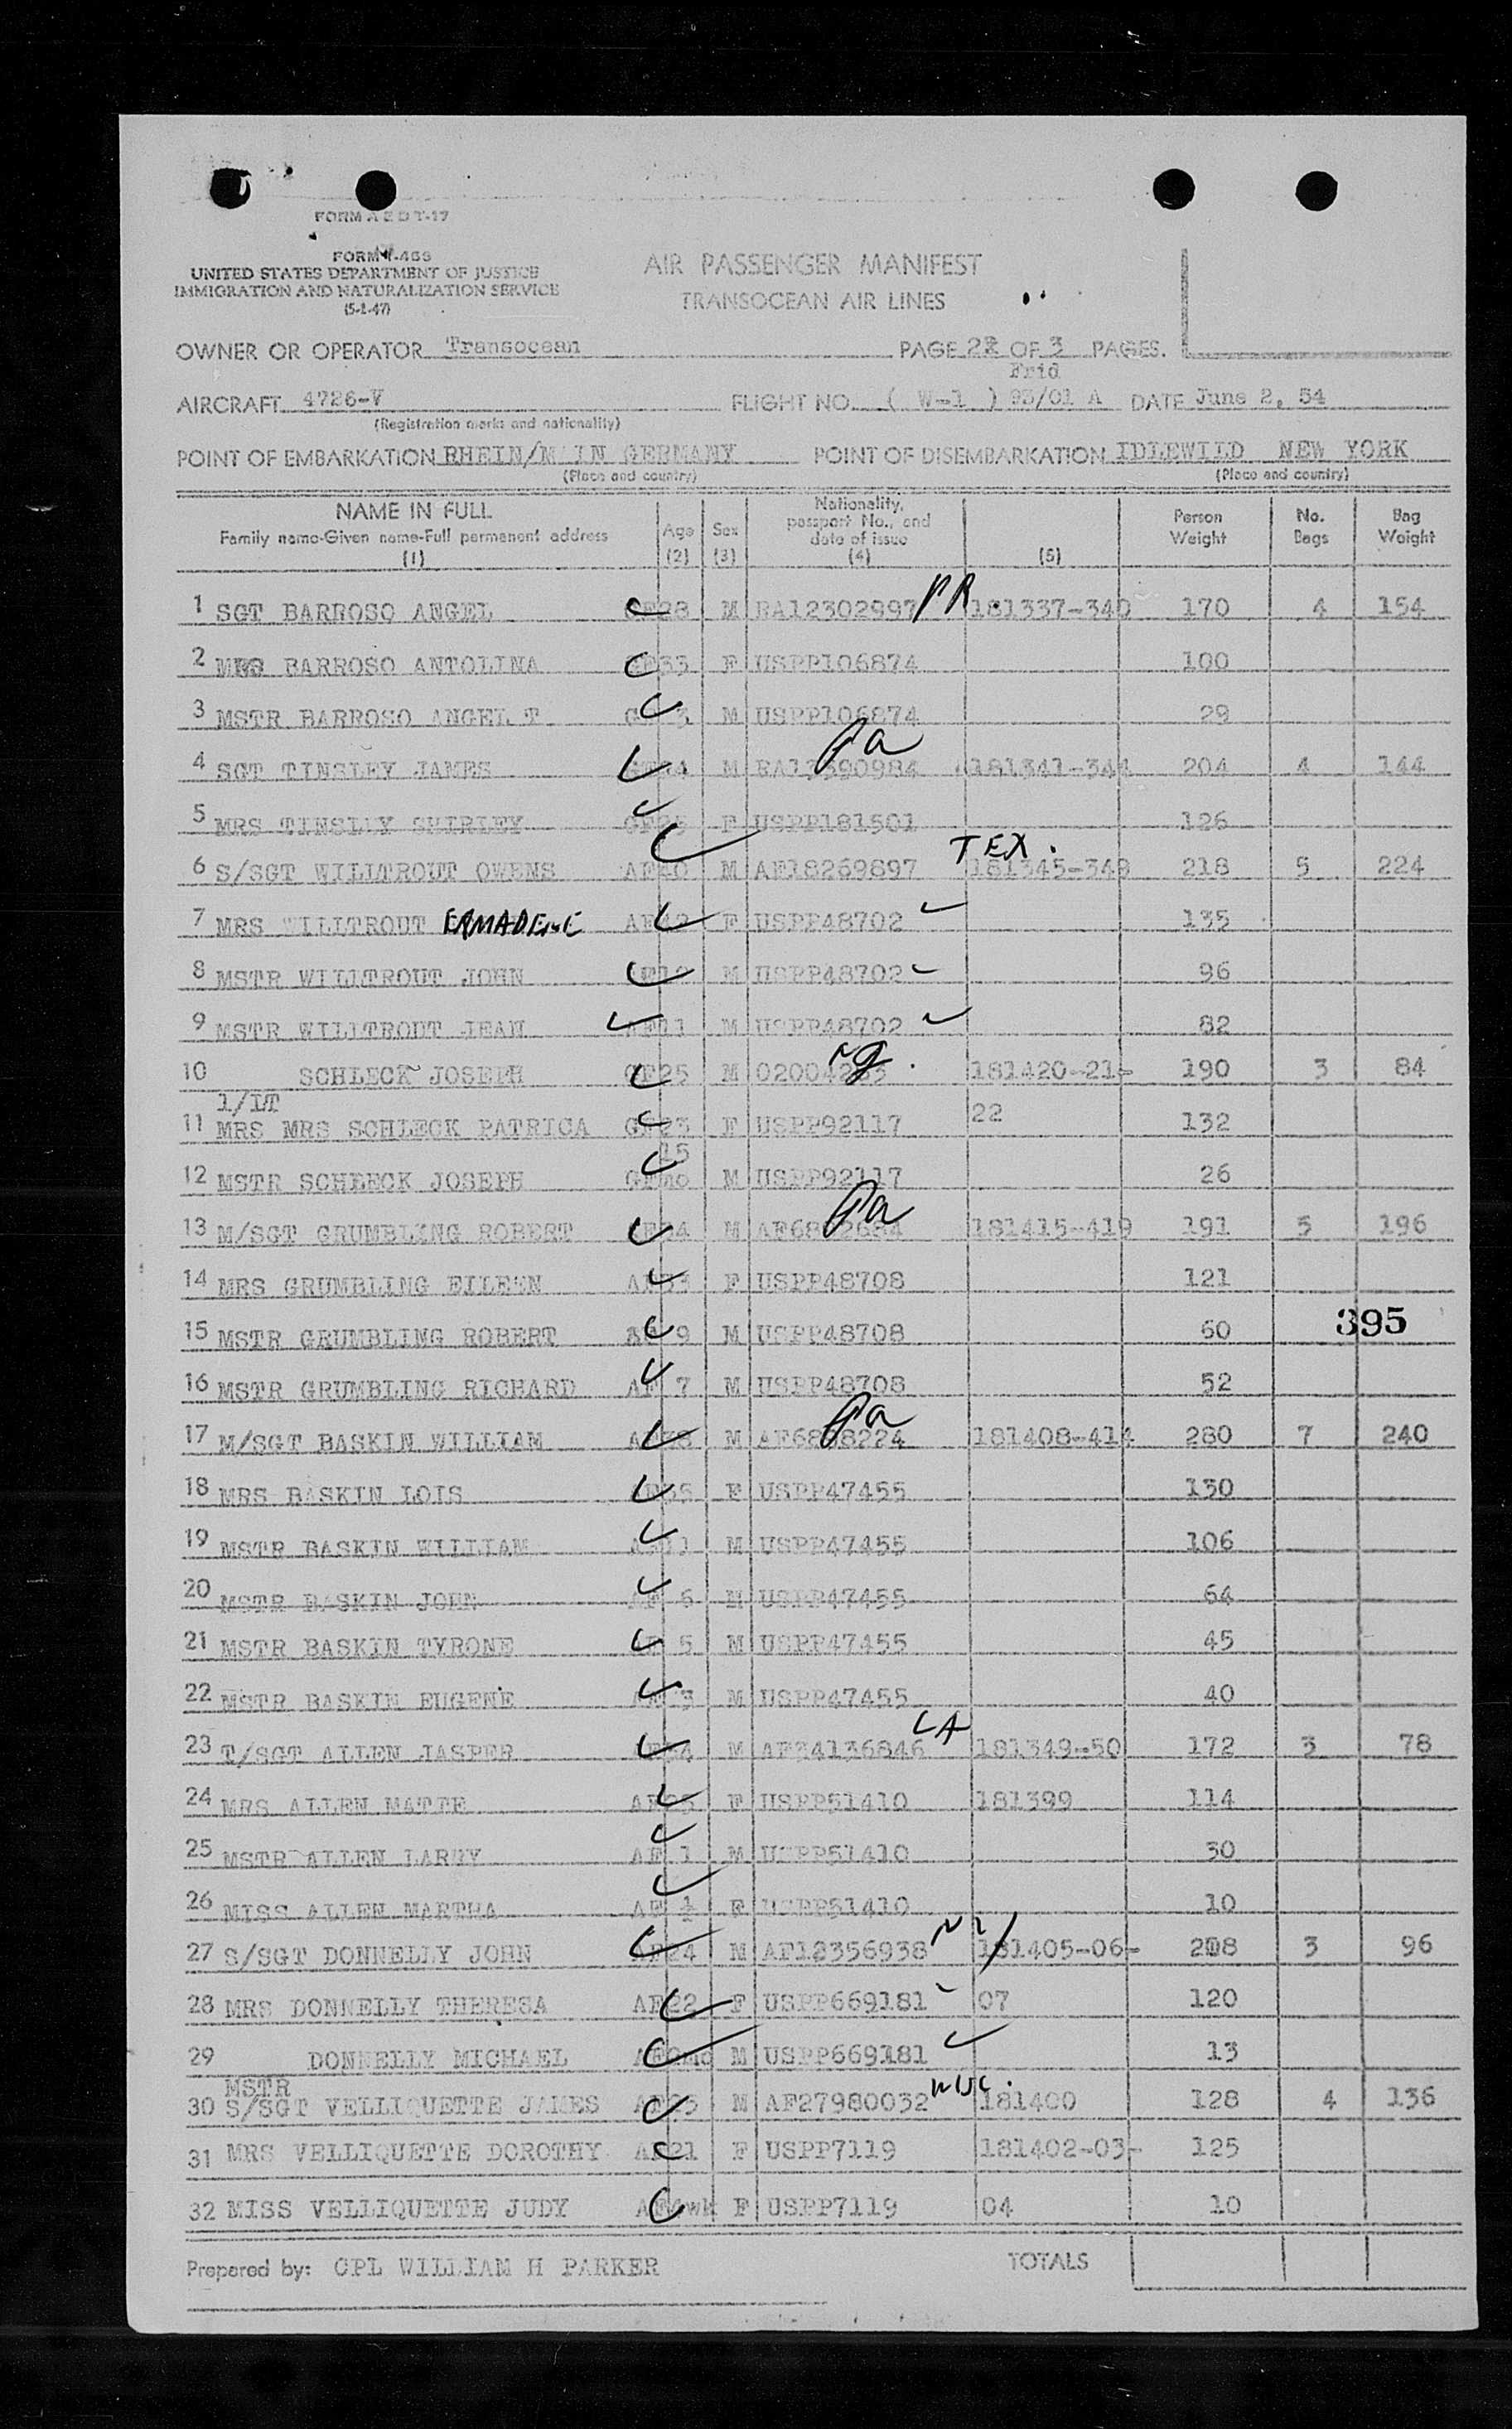 FORM A E D T-17
FORM I-466
UNITED STATES DEPARTMENT OF JUSTICE
IMMIGRATION AND NATURALIZATION SERVICE
(5-1-47)
AIR PASSENGER MANIFEST
TRANSOCEAN AIR LINES
OWNER OR OPERATOR Transocean PAGE 2 OF 3 PAGES.
Frid
AIRCRAFT 4726-V FLIGHT NO. ( W-1 ) 93/01 A DATE June 2, 54
(Registration marks and nationality)
POINT OF EMBARKATION RHEIN/MAIN GERMANY POINT OF DISEMBARKATION IDLEWILD NEW YORK
(Place and country) (Place and country)
NAME IN FULL Age Sex Nationality, passport No., and date of issue Person Weight No. Bags Bag Weight
Family name-Given name-Full permanent address
(1) (2) (3) (4) (5)
1 SGT BARROSO ANGEL 28 M RA12302997 PR 181337-340 170 4 154
2 MRS BARROSO ANTOLINA 33 F USPP106874 100
3 MSTR BARROSO ANGEL T 3 M USPP106874 29
Pa
4 SGT TINSLEY JAMES M RA13690984 181341-344 204 4 144
5 MRS TINSLEY SHIRLEY F USPP181501 126
TEX.
6 S/SGT WILLTROUT OWENS AF 40 M AF18269897 181345-349 218 5 224
7 MRS WILLTROUT ERMADENE AF F USPP48702 135
8 MSTR WILLTROUT JOHN 12 M USPP48702 96
9 MSTR WILLTROUT JEAN AF11 M USPP48702 82
10 SCHLECK JOSEPH 25 M 181420-21- 190 3 84
1/LT
11 MRS MRS SCHLECK PATRICA 23 F USPP92117 22 132
15
12 MSTR SCHLECK JOSEPH mo M USPP92117 26
Pa
13 M/SGT GRUMBLING ROBERT 34 M 181415-419 191 5 196
14 MRS GRUMBLING EILEEN AF33 F USPP48708 121
15 MSTR GRUMBLING ROBERT 9 M USPP48708 60
395
16 MSTR GRUMBLING RICHARD AF 7 M USPP48708 52
Pa
17 M/SGT BASKIN WILLIAM M 181408-414 280 7 240
18 MRS BASKIN LOIS 35 F USPP47455 130
19 MSTR BASKIN WILLIAM 11 M USPP47455 106
20 MSTR BASKIN JOHN AF 6 M USPP47455 64
21 MSTR BASKIN TYRONE 5 M USPP47455 45
22 MSTR BASKIN EUGENE 3 M USPP47455 40
23 T/SGT ALLEN JASPER 34 M AF34136846 LA 181349-50 172 3 78
24 MRS ALLEN MATTE AF25 F USPP51410 181399 114
25 MSTR ALLEN LARRY AF 1 M USPP51410 30
26 MISS ALLEN MARTHA AF ½ F USPP51410 10
27 S/SGT DONNELLY JOHN AF24 M AF12356938 NY 181405-06- 208 3 96
28 MRS DONNELLY THERESA AF22 F USPP669181 07 120
29 DONNELLY MICHAEL M USPP669181 13
MSTR
30 S/SGT VELLIQUETTE JAMES AF25 M AF27980032 181400 128 4 136
31 MRS VELLIQUETTE DOROTHY AF21 F USPP7119 181402-03- 125
32 MISS VELLIQUETTE JUDY wk F USPP7119 04 10
Prepared by: CPL WILLIAM H PARKER TOTALS